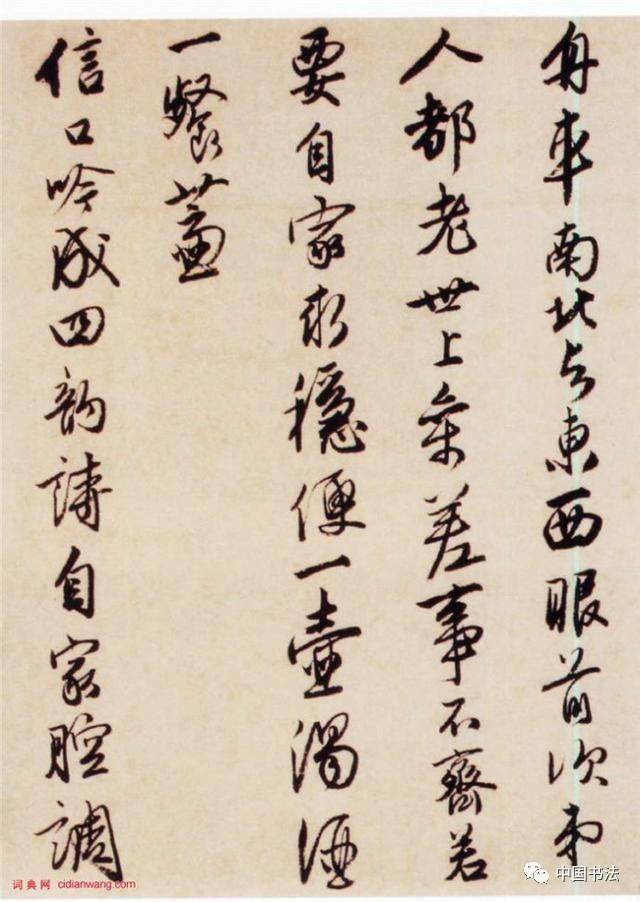 舟車南北与東西眼前次弟
人都老世上參差事不齊若
要自家求穩便一壺濁酒
一餐虀
信口吟成四韵詩自家腔調
词典网 cidianwang.com
中国书法